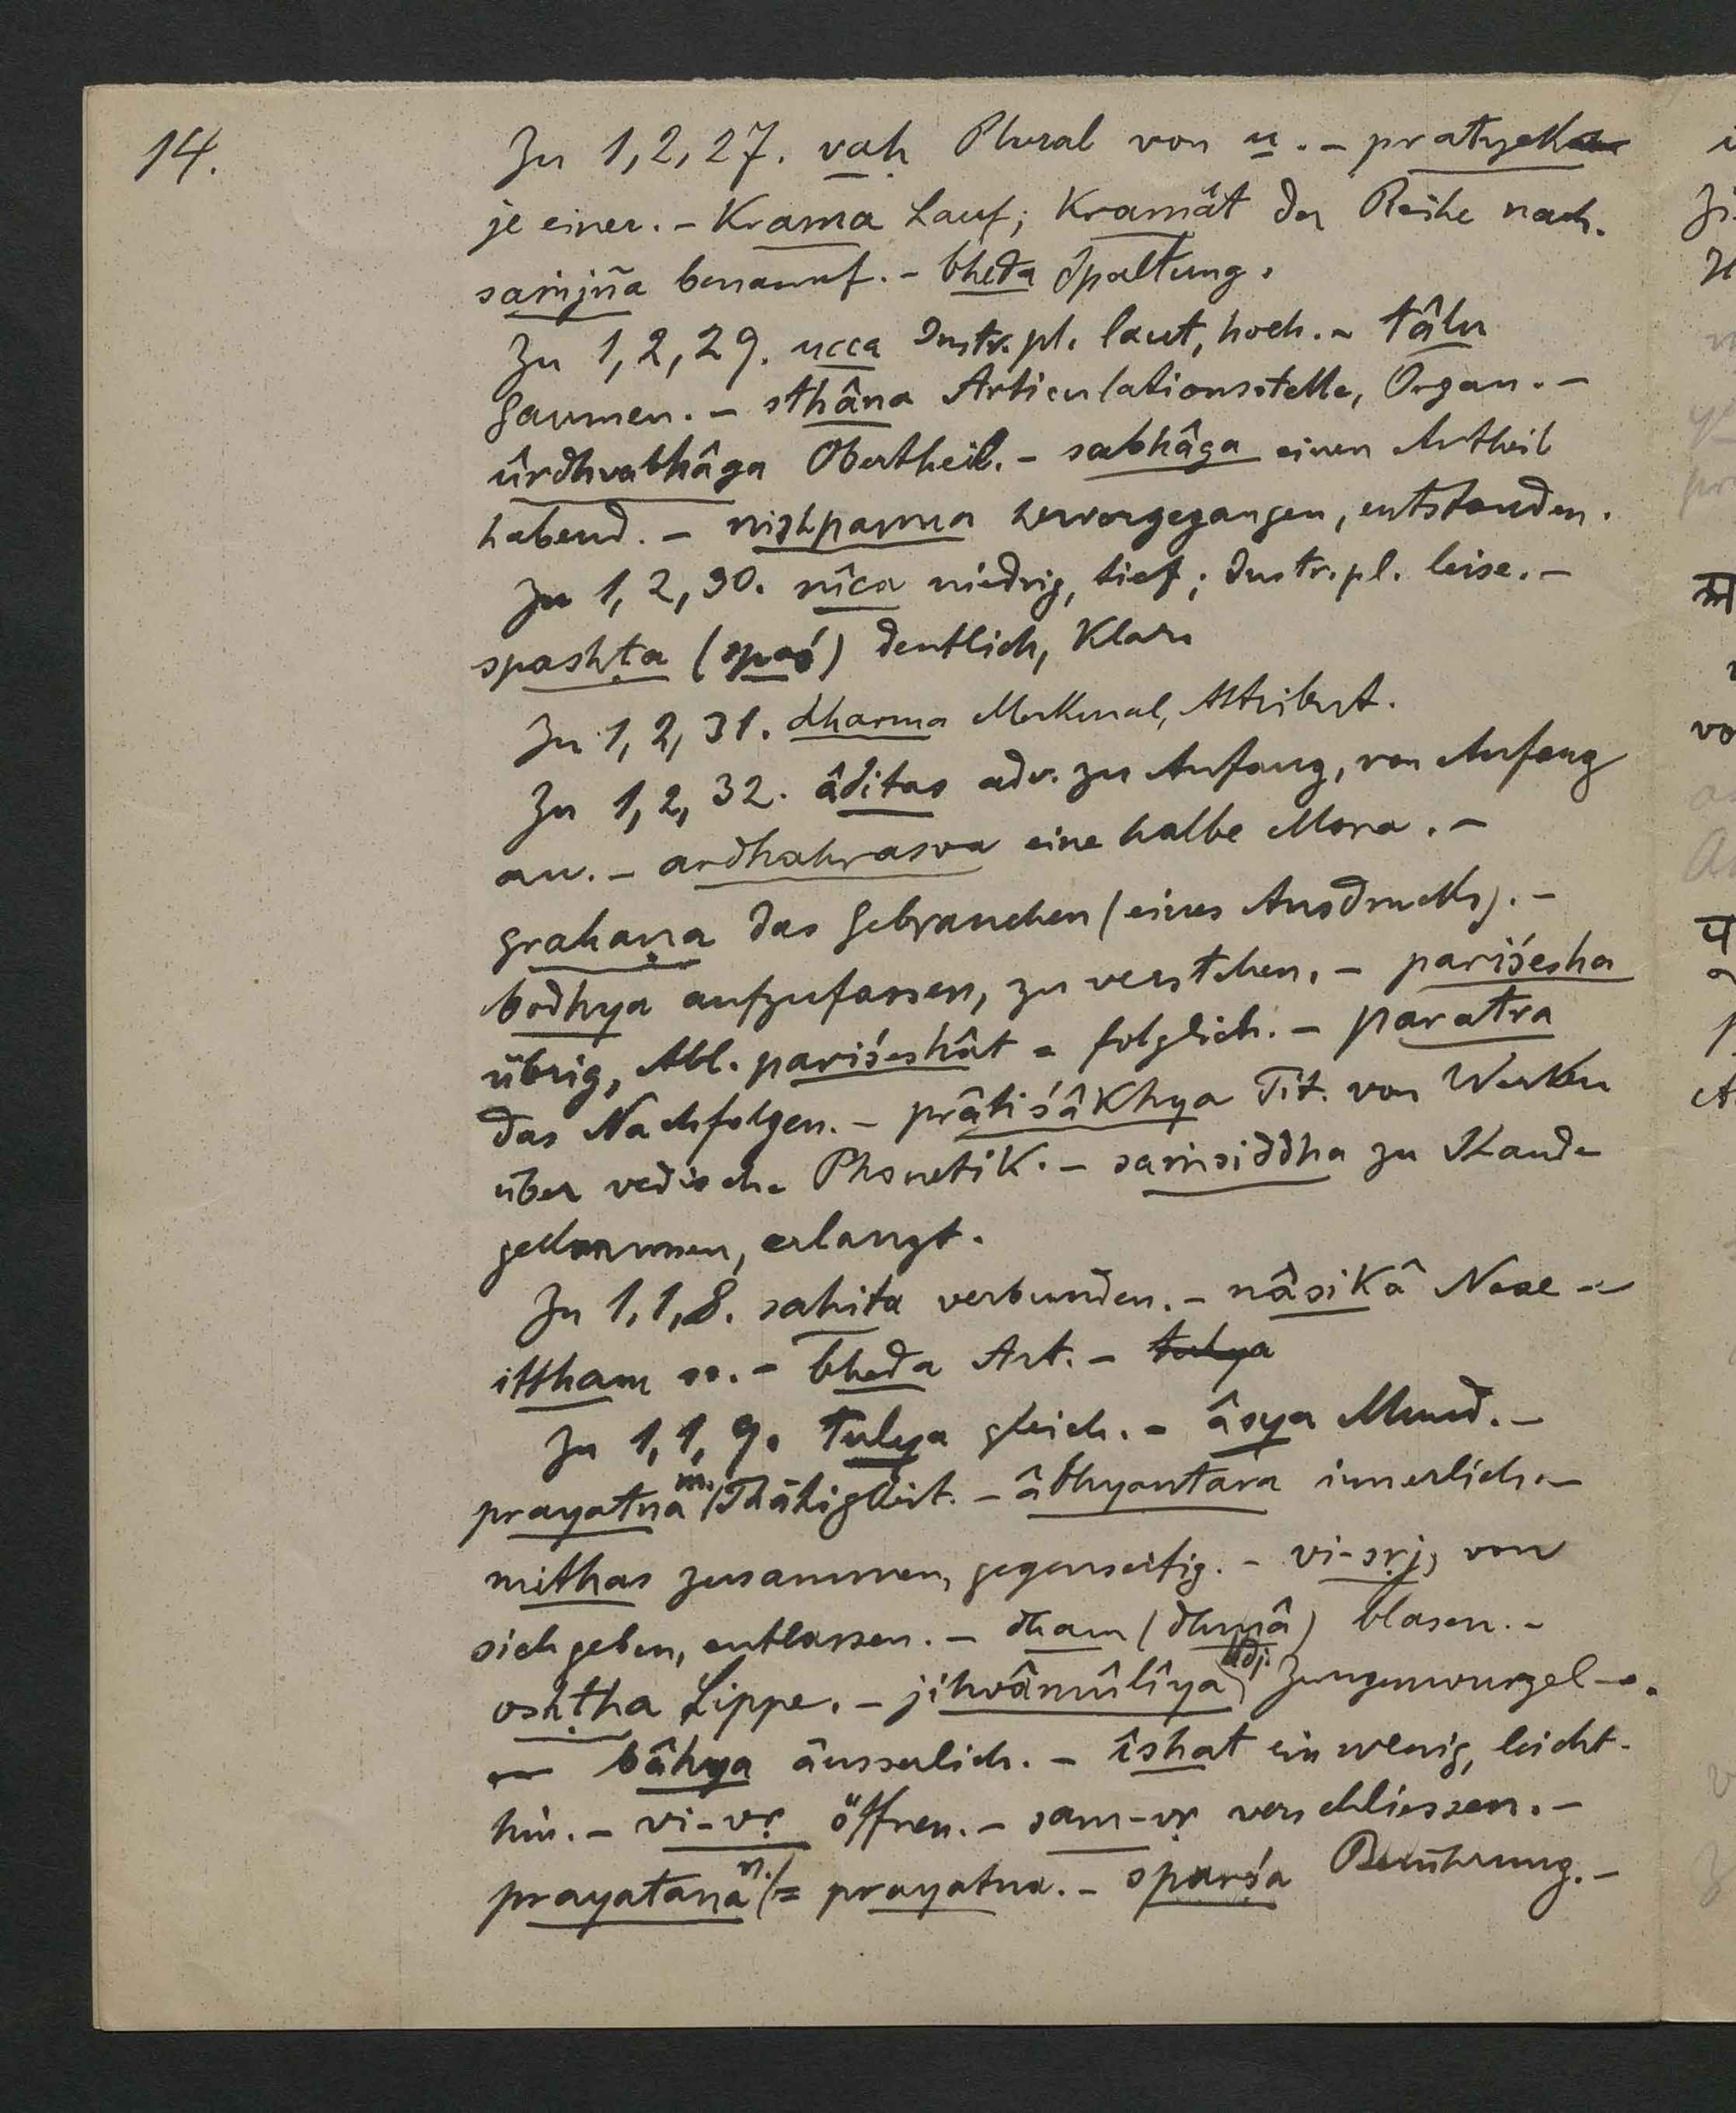 14.
Zu 1,2,27. vaḥ Plural von u. – pratyeka
je einer. – Krama Lauf; Kramât der Reihe nach.
saṁjña benannt. – bheda Spaltung.
Zu 1,2,29. ucca Instr. pl. laut, hoch. – tâlu
Gaumen. – sthâna Articulationsstelle, Organ. –
ûrdhvabhâga Obertheil. – sabhâga einen Antheil
habend. – nishpanna hervorgegangen, entstanden.
Zu 1,2,30. nîca niedrig, tief; Instr. pl. leise. –
spashṭa (spaś) deutlich, Klar.
Zu 1,2,31. dharma Merkmal, Attribut.
Zu 1,2,32. âditas adv. zu Anfang, von Anfang
an. – ardhahrasva eine halbe Mora. –
grahaṇa das Gebrauchen (eines Ausdrucks). –
bodhya aufzufassen, zu verstehen. – pariśesha
übrig, Abl. pariśeshât = folglich. – paratra
das Nachfolgen. – prâtiśâKhya Tit. von Werken
über vedische PhonetiK. – saṁsiddha zu Stande
gekommen, erlangt.
Zu 1,1,8. sahita verbunden. – nâsiKâ Nase –
ittham so. – bheda Art. – tulya
Zu 1,1,9. tulya gleich. – âsya Mund. –
prayatna m. Thätigkeit. – âbhyantara innerlich. –
mithas zusammen, gegenseitig. – vi-sṛj, von
sich geben, entlassen. – dham (dhmâ) blasen. –
oshṭha Lippe. – jihvâmûlîya Adj. Zungenwurzel-.
bâhya äusserlich. – îshat ein wenig, leicht-
hin. – vi-vṛ öffnen. – sam-vṛ verschliessen. –
prayatana n. = prayatna. – sparśa Berührung. –